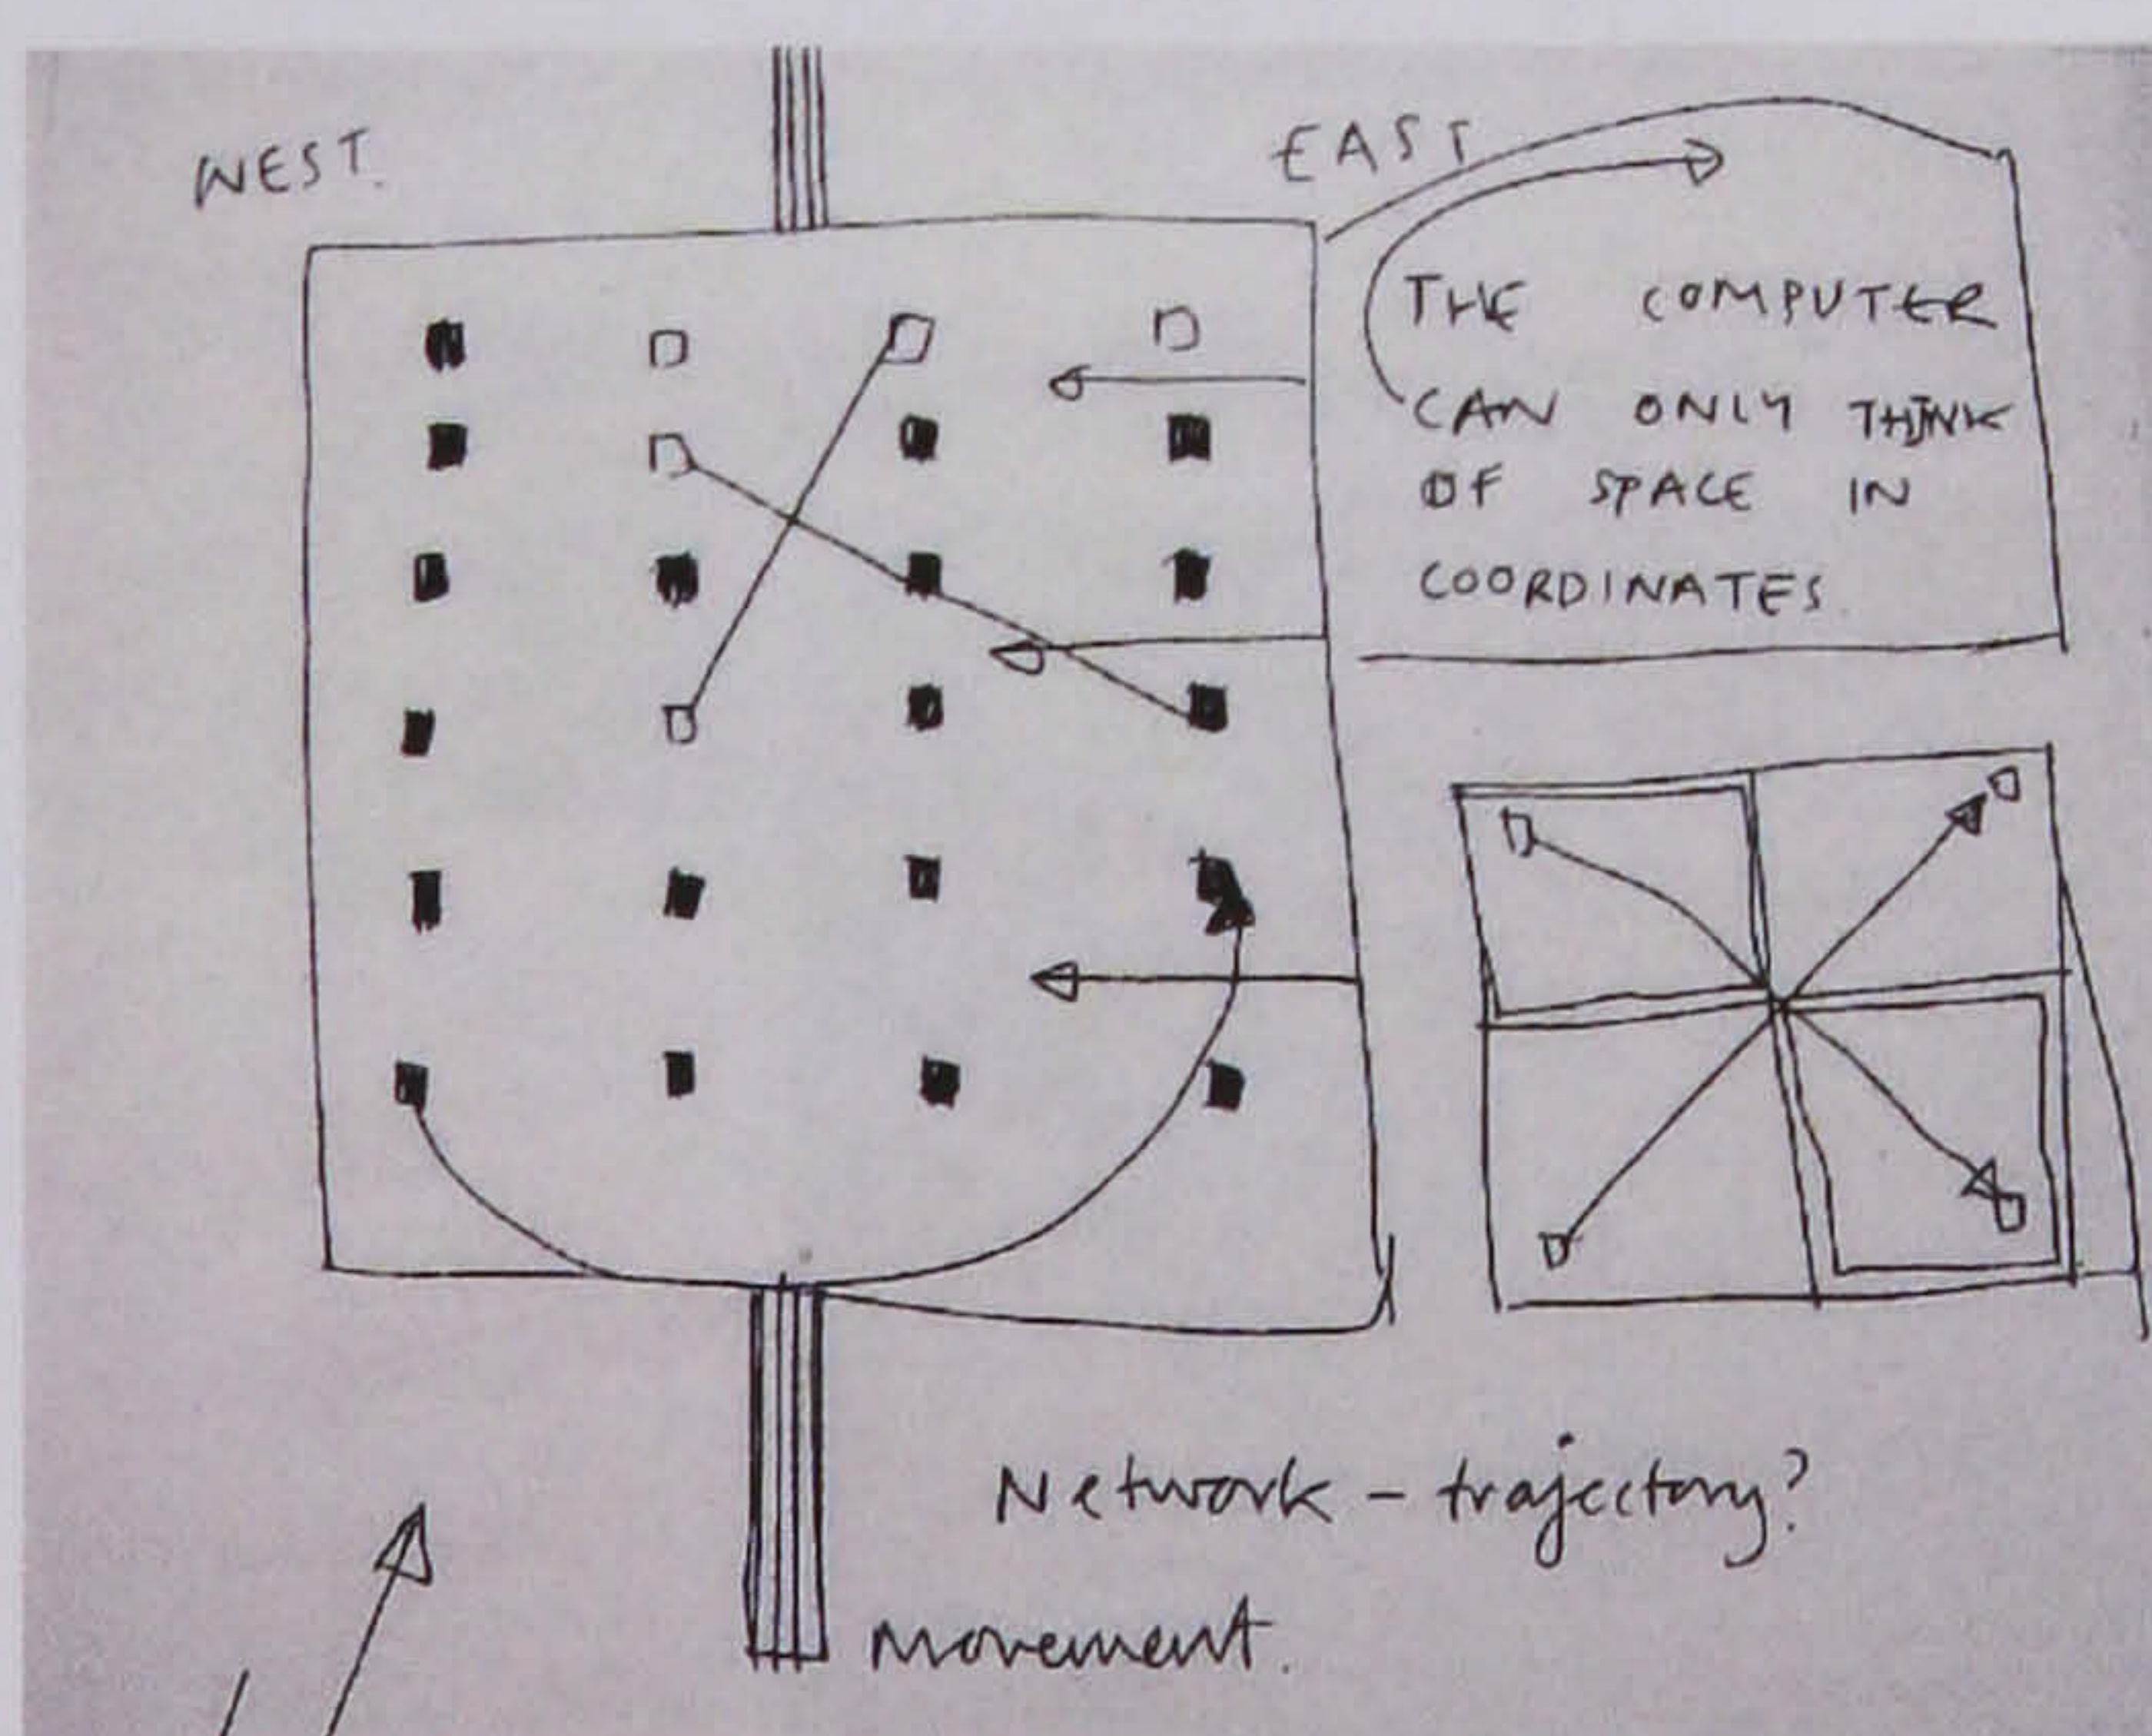 WEST.
EAST
THE COMPUTER
CAN ONLY THINK
OF SPACE IN
COORDINATES
Network - trajectory?
movement.